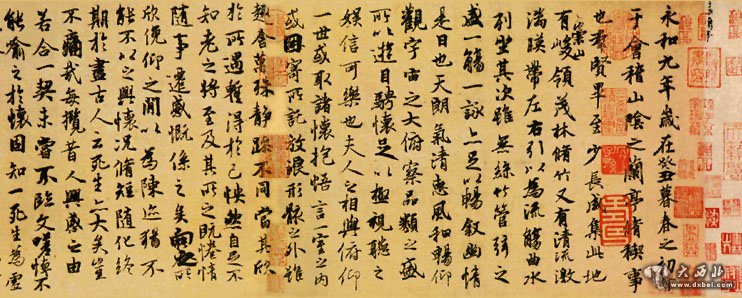 永和九年歲在癸丑暮春之初
于會稽山陰之蘭亭脩稧事
也羣賢畢至少長咸集此地
有崇山峻領茂林脩竹又有清流激
湍暎帶左右引以為流觴曲水
列坐其次雖無絲竹管弦之
盛一觴一詠亦足以暢敘幽情
是日也天朗氣清惠風和暢仰
觀宇宙之大俯察品類之盛
所以遊目騁懷足以極視聽之
娛信可樂也夫人之相與俯仰
一世或取諸懷抱悟言一室之內
或因寄所託放浪形骸之外雖
趣舍萬殊靜躁不同當其欣
於所遇蹔得於己怏然自足不
知老之將至及其所之既惓情
隨事遷感慨係之矣向之所
欣俛仰之閒以為陳迹猶不
能不以之興懷況脩短隨化終
期於盡古人云死生亦大矣豈
不痛哉每攬昔人興感之由
若合一契未嘗不臨文嗟悼不
能喻之於懷固知一死生為虛
大西北
www.dxbei.com